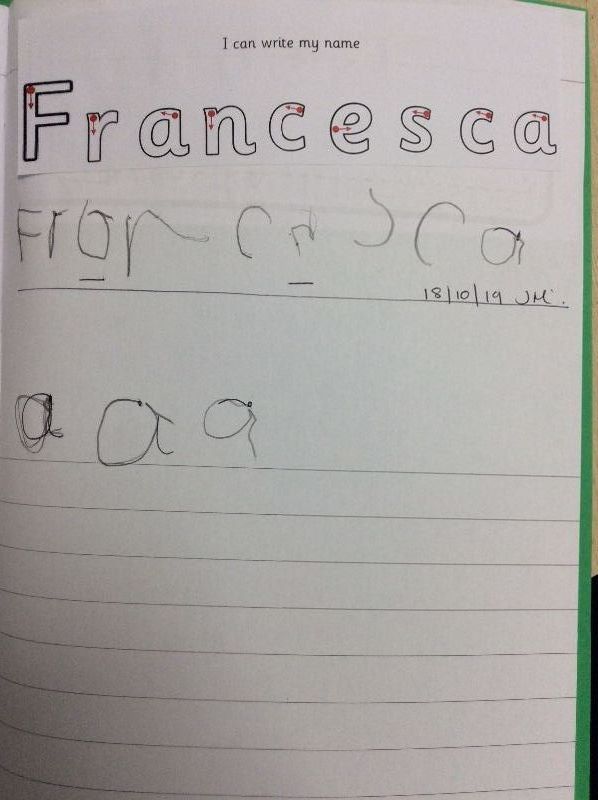 I can write my name
Francesca
Francesca
18/10/19 JM.
a a a